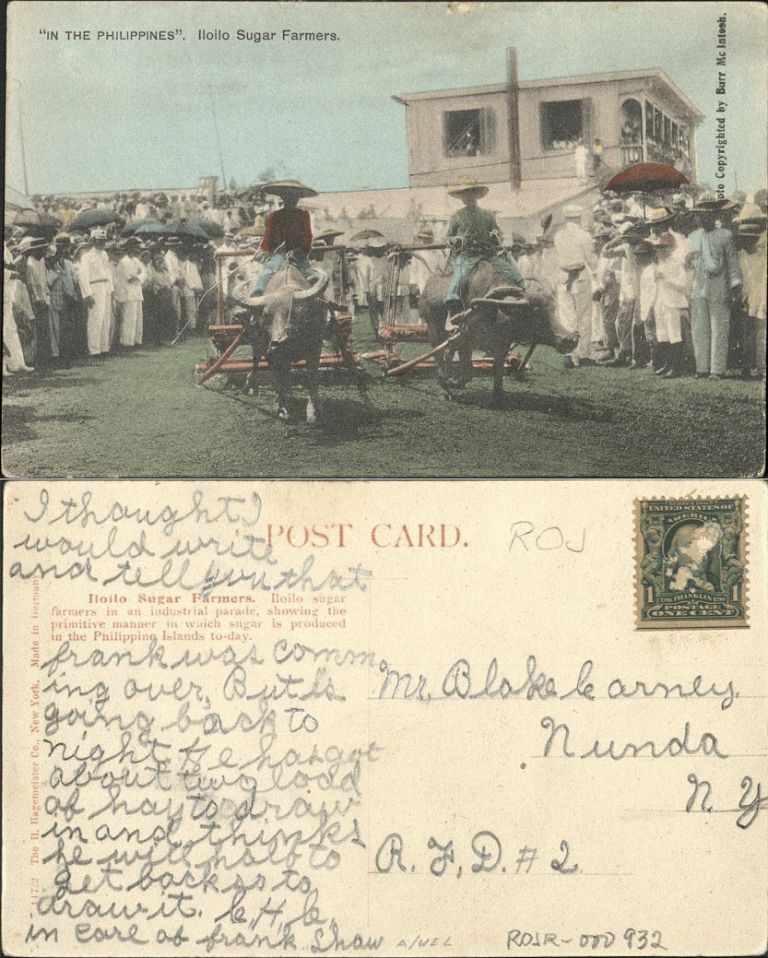 "IN THE PHILIPPINES". Iloilo Sugar Farmers.
oto Copyrighted by Burr McIntosh.
I thought I
would write
and tell you that
POST CARD.
ROJ
UNITED STATES OF
AMERICA
1 FRANKLIN 1
POSTAGE
ONE CENT
Iloilo Sugar Farmers. Iloilo sugar
farmers in an industrial parade, showing the
primitive manner in which sugar is produced
in the Philippine Islands to-day.
frank was comm
ing over, But is
going back to
night. He has got
about two load
of hay to draw
in and thinks
he will halo to
get back so to
draw it. C, H, C,
in care of frank Shaw
Mr. Blake Carney.
Nunda
N. Y
R. F. D. # 2
The H. Hagemeister Co., New York. Made in Germany
ROJR-000932